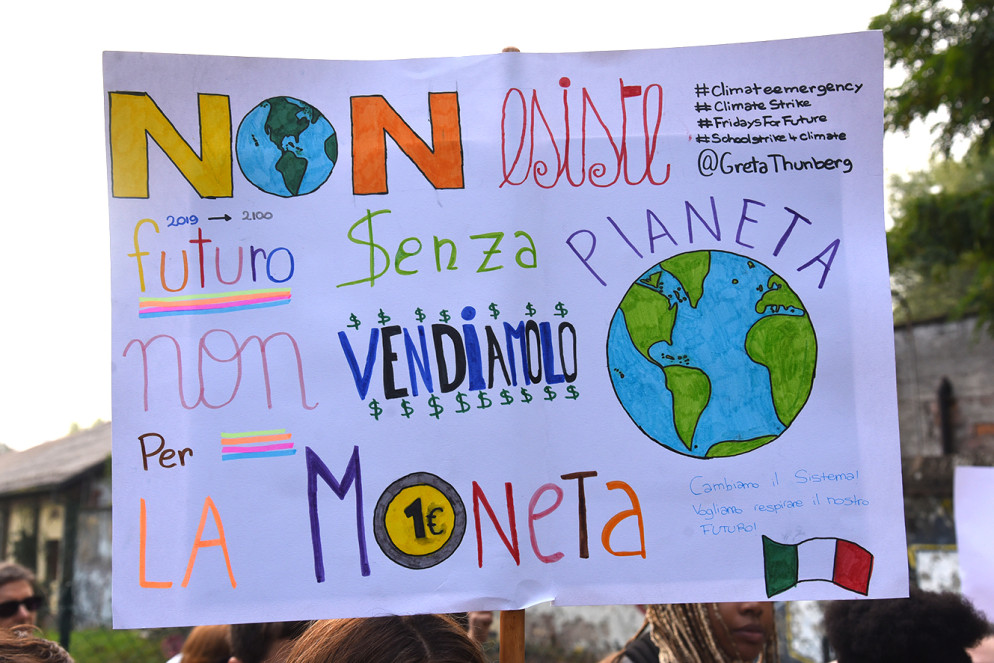 NON esiste
#Climateemergency
#Climate Strike
#FridaysForFuture
#Schoolstrike4climate
@GretaThunberg
2019 → 2100
futuro $enza PIANETA
$ $ $ $ $ $ $
non VENDiAMOLO
$ $ $ $ $ $ $ $ $
Per
LA MONeTa
1€
Cambiamo il Sistema!
Vogliamo respirare il nostro
FUTURO!